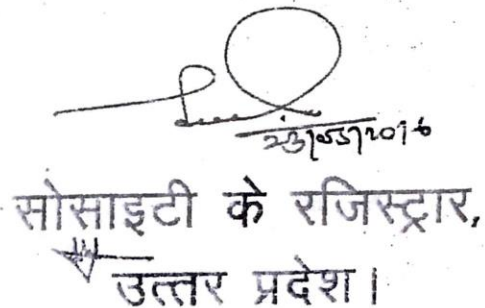 23/05/2016
सोसाइटी के रजिस्ट्रार,
उत्तर प्रदेश।